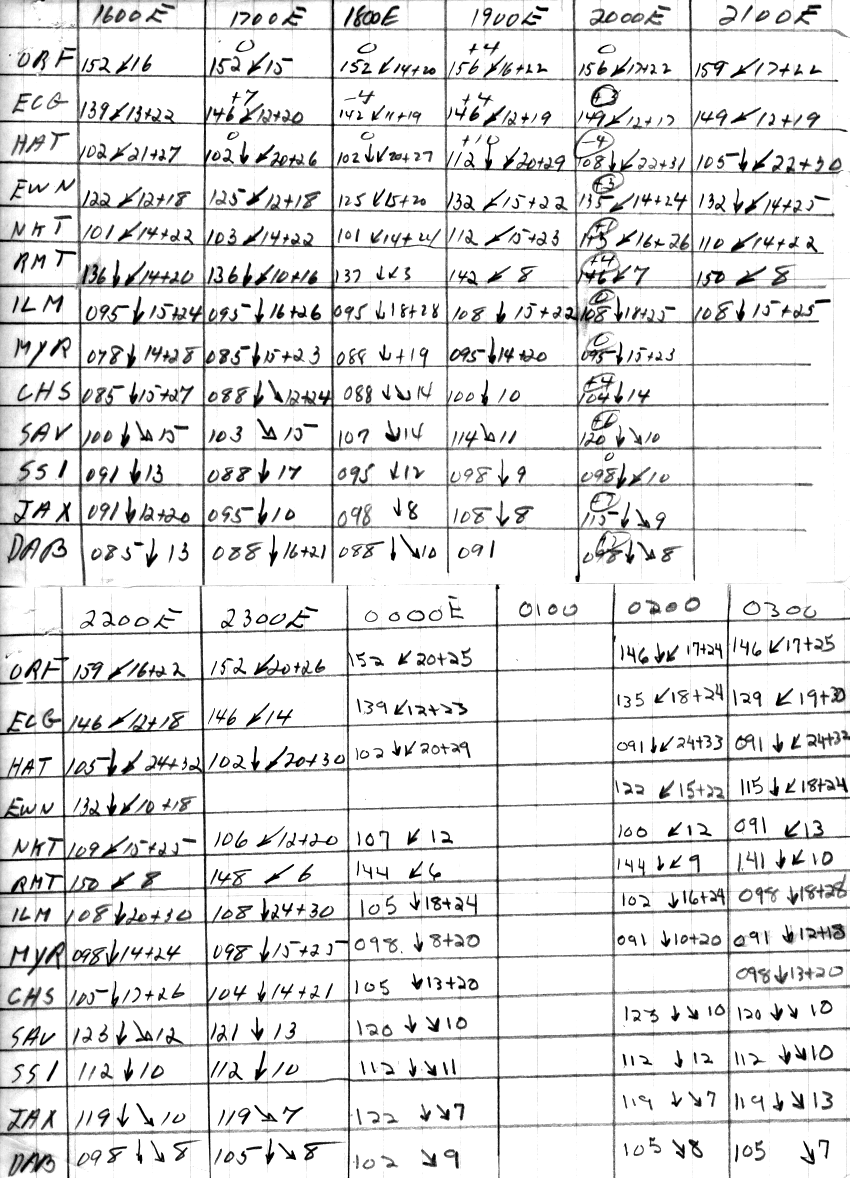 1600E 1700E 1800E 1900E 2000E 2100E
0 0 +4 0
ORF 152 ↙ 16 152 ↙ 15 152 ↙ 14+20 156 ↙ 16+22 156 ↙ 17+22 159 ↙ 17+22
+7 -4 +4 +3
ECG 139 ↙ 13+22 146 ↙ 12+20 142 ↙ 11+19 146 ↙ 12+19 149 ↙ 12+17 149 ↙ 12+19
0 0 +10 -4
HAT 102 ↙ 21+27 102 ↓↙ 20+26 102 ↓↙ 20+27 112 ↓↙ 20+29 108 ↓↙ 22+31 105 ↓↙ 22+30
+3
EWN 122 ↙ 12+18 125 ↙ 12+18 125 ↙ 15+20 132 ↙ 15+22 135 ↙ 14+24 132 ↓↙ 14+25
NKT 101 ↙ 14+22 103 ↙ 14+22 101 ↙ 14+24 112 ↙ 15+23 113 ↙ 16+26 110 ↙ 14+22
+4
RMT 136 ↓↙ 14+20 136 ↓↙ 10+16 137 ↓↙ 3 142 ↙ 8 146 ↙ 7 150 ↙ 8
0
ILM 095 ↓ 15+24 095 ↓ 16+26 095 ↓ 18+28 108 ↓ 15+22 108 ↓ 18+25 108 ↓ 15+25
0
MYR 078 ↓ 14+28 085 ↓ 15+23 088 ↓ +19 095 ↓ 14+20 095 ↓ 15+23
+4
CHS 085 ↓ 15+27 088 ↓↘ 12+24 088 ↓↘ 14 100 ↓ 10 104 ↓ 14
+6
SAV 100 ↓↘ 15 103 ↘ 15 107 ↘ 14 114 ↘ 11 120 ↓↘ 10
0
SSI 091 ↓ 13 088 ↓ 17 095 ↓ 12 098 ↓ 9 098 ↓↙ 10
+7
JAX 091 ↓ 12+20 095 ↓ 10 098 ↓ 8 108 ↓ 8 115 ↓↘ 9
DAB 085 ↓ 13 088 ↓ 16+21 088 ↓↘ 10 091 098 ↓↘ 8
2200E 2300E 0000E 0100 0200 0300
ORF 159 ↙ 16+22 152 ↙ 20+26 152 ↙ 20+25 146 ↓↙ 17+24 146 ↙ 17+25
ECG 146 ↙ 12+18 146 ↙ 14 139 ↙ 12+23 135 ↙ 18+24 129 ↙ 19+30
HAT 105 ↓↙ 24+32 102 ↓↙ 20+30 102 ↓↙ 20+29 091 ↓↙ 24+33 091 ↓↙ 24+32
EWN 132 ↓↙ 10+18 122 ↙ 15+22 115 ↓↙ 18+24
NKT 109 ↙ 15+25 106 ↙ 12+20 107 ↙ 12 100 ↙ 12 091 ↙ 13
RMT 150 ↙ 8 148 ↙ 6 144 ↙ 6 144 ↓↙ 9 141 ↓↙ 10
ILM 108 ↓ 20+30 108 ↓ 24+30 105 ↓ 18+24 102 ↓ 16+24 098 ↓ 18+28
MYR 098 ↓ 14+24 098 ↓ 15+25 098 ↓ 8+20 091 ↓ 10+20 091 ↓ 12+18
CHS 105 ↓ 17+26 104 ↓ 14+21 105 ↓ 13+20 098 ↓ 13+20
SAV 123 ↓↘ 12 121 ↓ 13 120 ↓↘ 10 123 ↓↘ 10 120 ↓↘ 10
SSI 112 ↓ 10 112 ↓ 10 112 ↓↘ 11 112 ↓ 12 112 ↓↘ 10
JAX 119 ↓↘ 10 119 ↘ 7 122 ↓↘ 7 119 ↓↘ 7 119 ↓↘ 13
DAB 098 ↓↘ 8 105 ↓↘ 8 102 ↘ 9 105 ↘ 8 105 ↘ 7